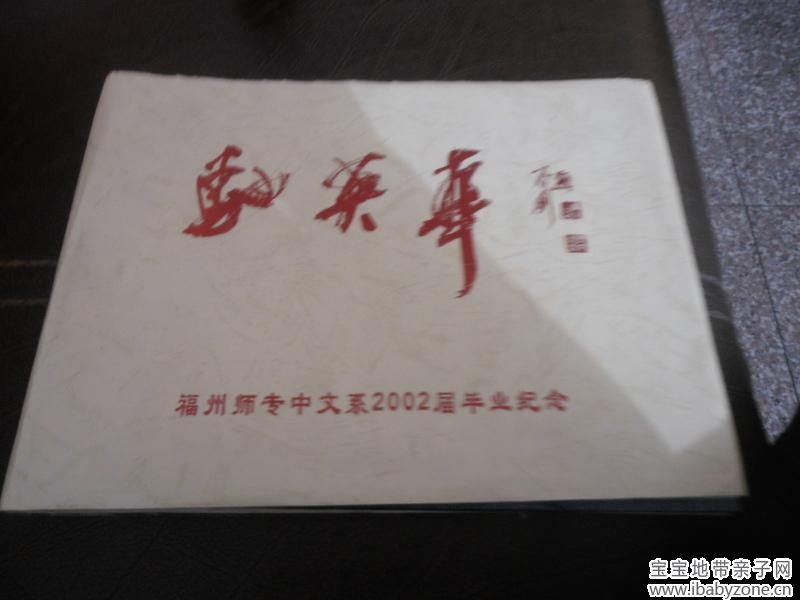 英华
福州师专中文系2002届毕业纪念
宝宝地带亲子网
www.ibabyzone.cn